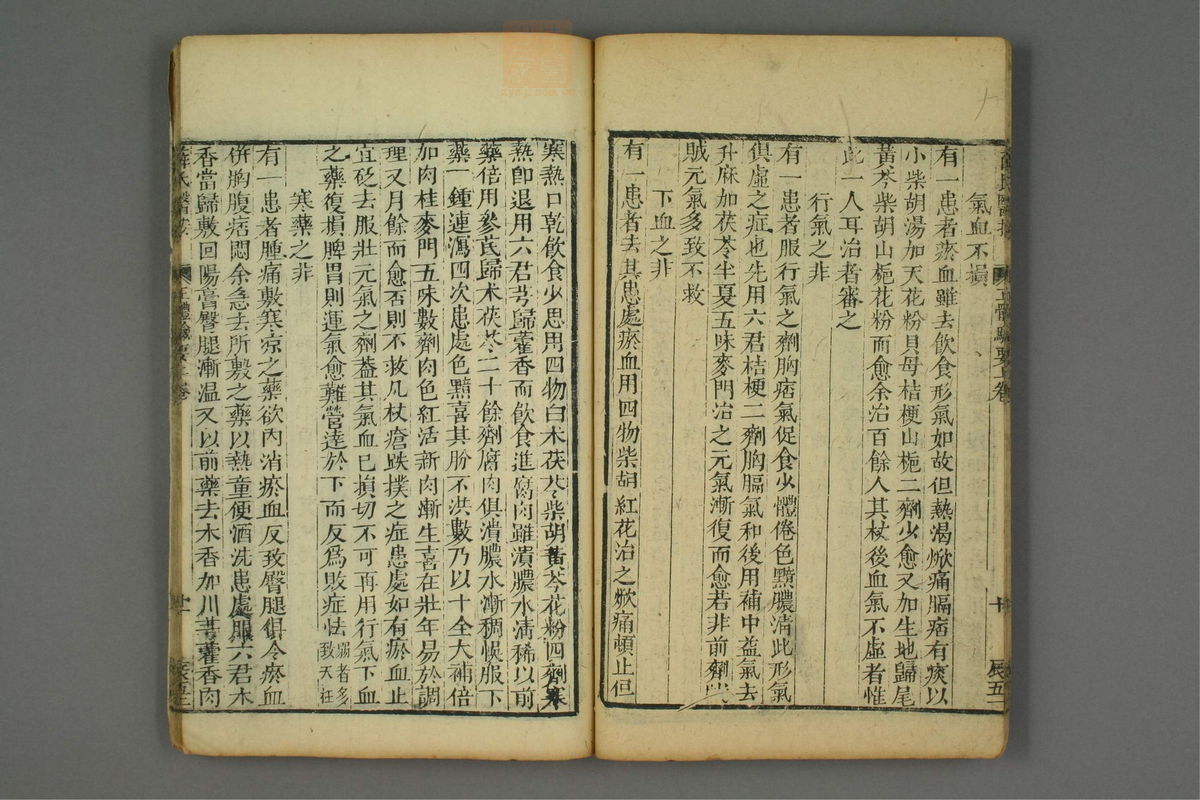 薛氏醫按 正體類要上卷 十 辰五
氣血不損
有一患者瘀血雖去飲食形氣如故但熱渴焮痛膈痞有痰以
小柴胡湯加天花粉貝母桔梗山梔二劑少愈又加生地歸尾
黃芩柴胡山梔花粉而愈余治百餘人其杖後血氣不虛者惟
此一人耳治者審之
行氣之非
有一患者服行氣之劑胸痞氣促食少體倦色黯膿清此形氣
俱虛之症也先用六君桔梗二劑胸膈氣和後用補中益氣去
升麻加茯苓半夏五味麥門治之元氣漸復而愈若非前劑
賊元氣多致不救
下血之非
有一患者去其患處瘀血用四物柴胡紅花治之焮痛頓止但
寒熱口乾飲食少思用四物白朮茯苓柴胡黃芩花粉四劑寒
熱即退用六君芎歸藿香而飲食進腐肉雖潰膿水清稀以前
藥倍用參芪歸朮茯苓二十餘劑腐肉俱潰膿水漸稠悞服下
藥一鍾連瀉四次患處色黯喜其脉不洪數乃以十全大補倍
加肉桂麥門五味數劑肉色紅活新肉漸生喜在壯年易於調
理又月餘而愈否則不救凡杖瘡跌撲之症患處如有瘀血止
宜砭去服壯元氣之劑蓋其氣血已損切不可再用行氣下血
之藥復損脾胃則運氣愈難營達於下而反爲敗症怯弱者多致夭枉
寒藥之非
有一患者腫痛敷寒凉之藥欲內消瘀血反致臀腿俱冷瘀血
併胸腹痞悶余急去所敷之藥以熱童便酒洗患處服六君木
香當歸敷回陽膏臀腿漸温又以前藥去木香加川芎藿香肉
薛氏醫按 正體類要上卷 十一 辰五